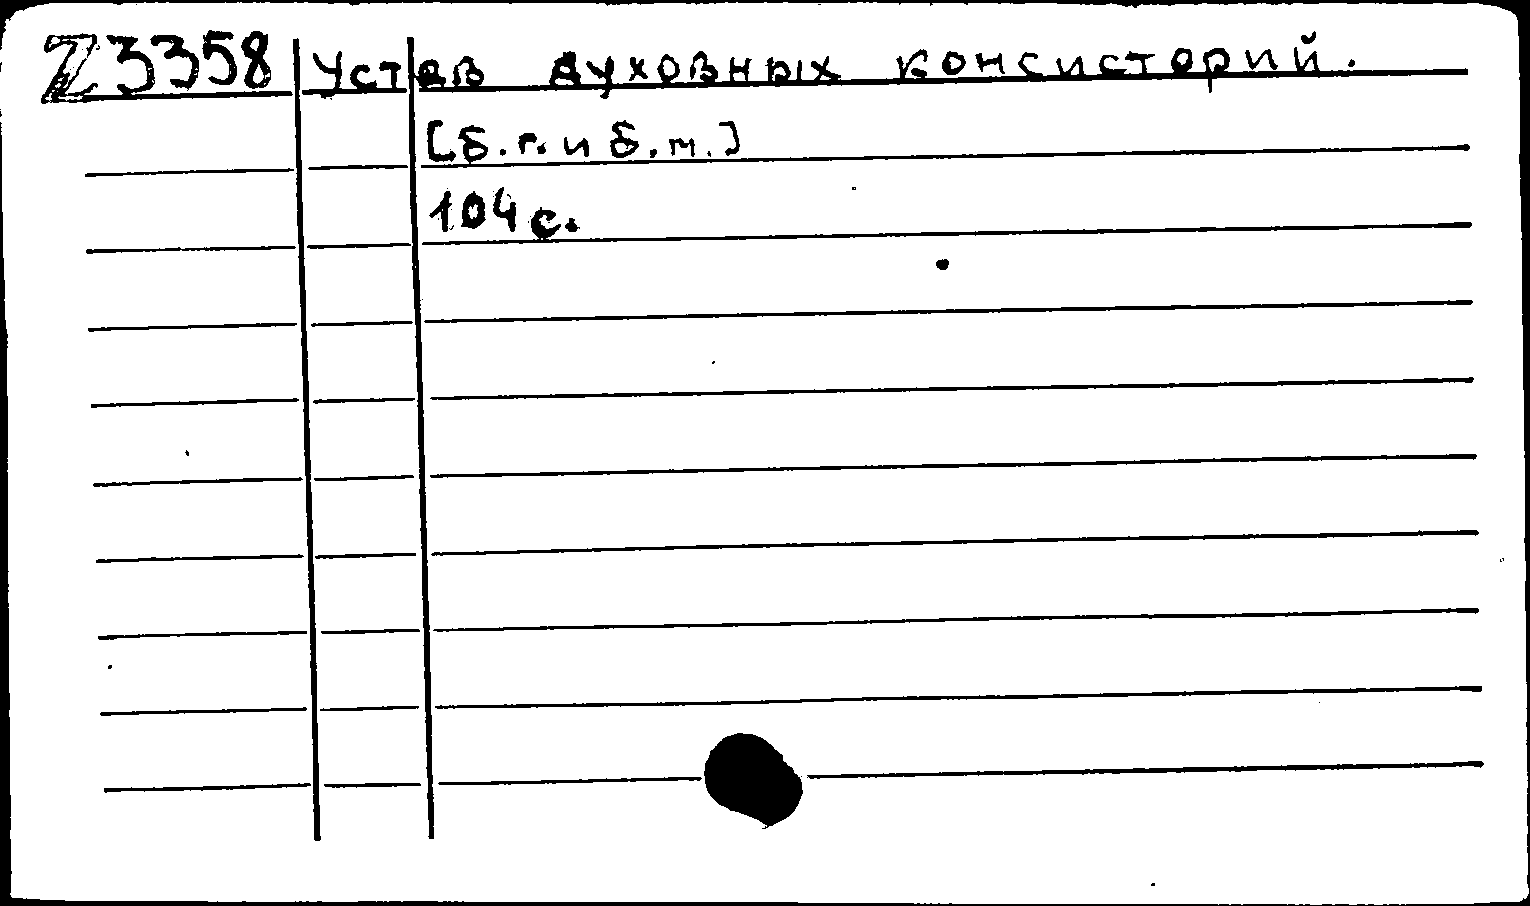 Z3358 Устав духовных консисторий.
[б.г. и б.м.]
104 с.